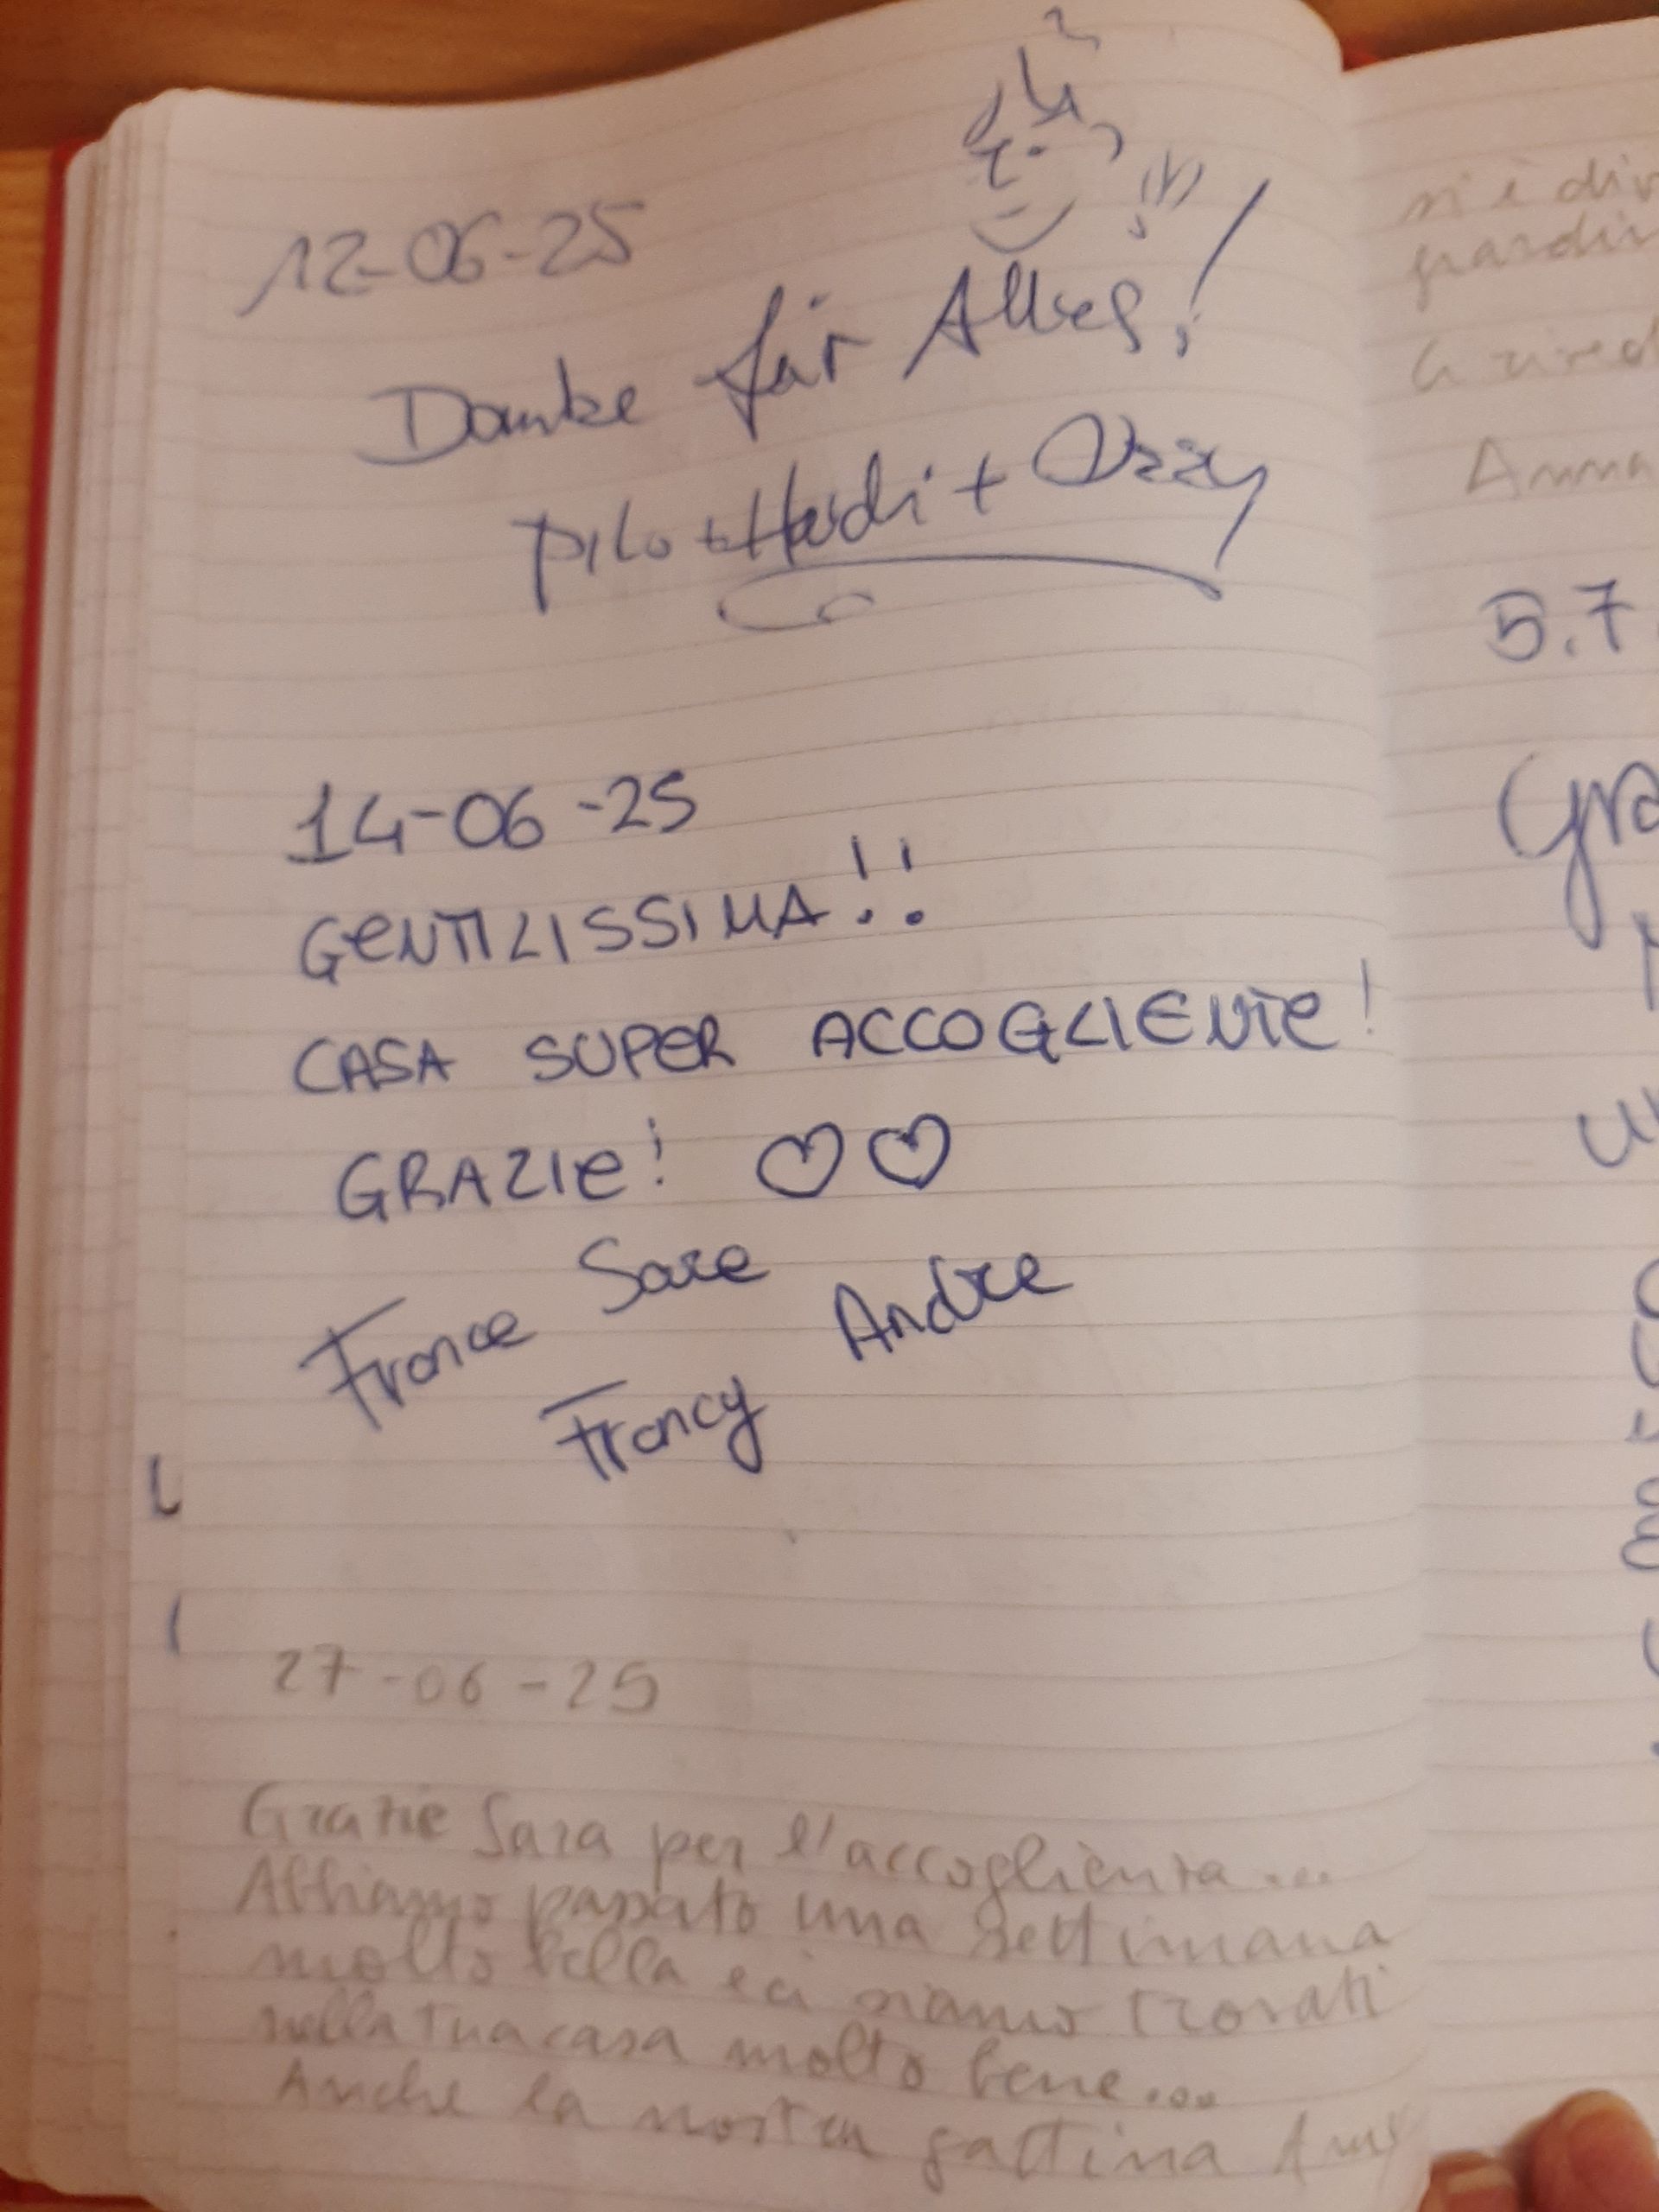 12-06-25
Danke für Alles!
Pilo + Hardi + Ozzy
14-06-25
GENTILISSIMA!!
CASA SUPER ACCOGLIENTE!
GRAZIE! ♡♡
Sara
France
Andre
Francy
27-06-25
Grazie Sara per l'accoglienza...
Abbiamo passato una settimana
molto bella e ci siamo trovati
nella tua casa molto bene...
Anche la nostra gattina
si è div
giardin
Anna
5.7.
Gra